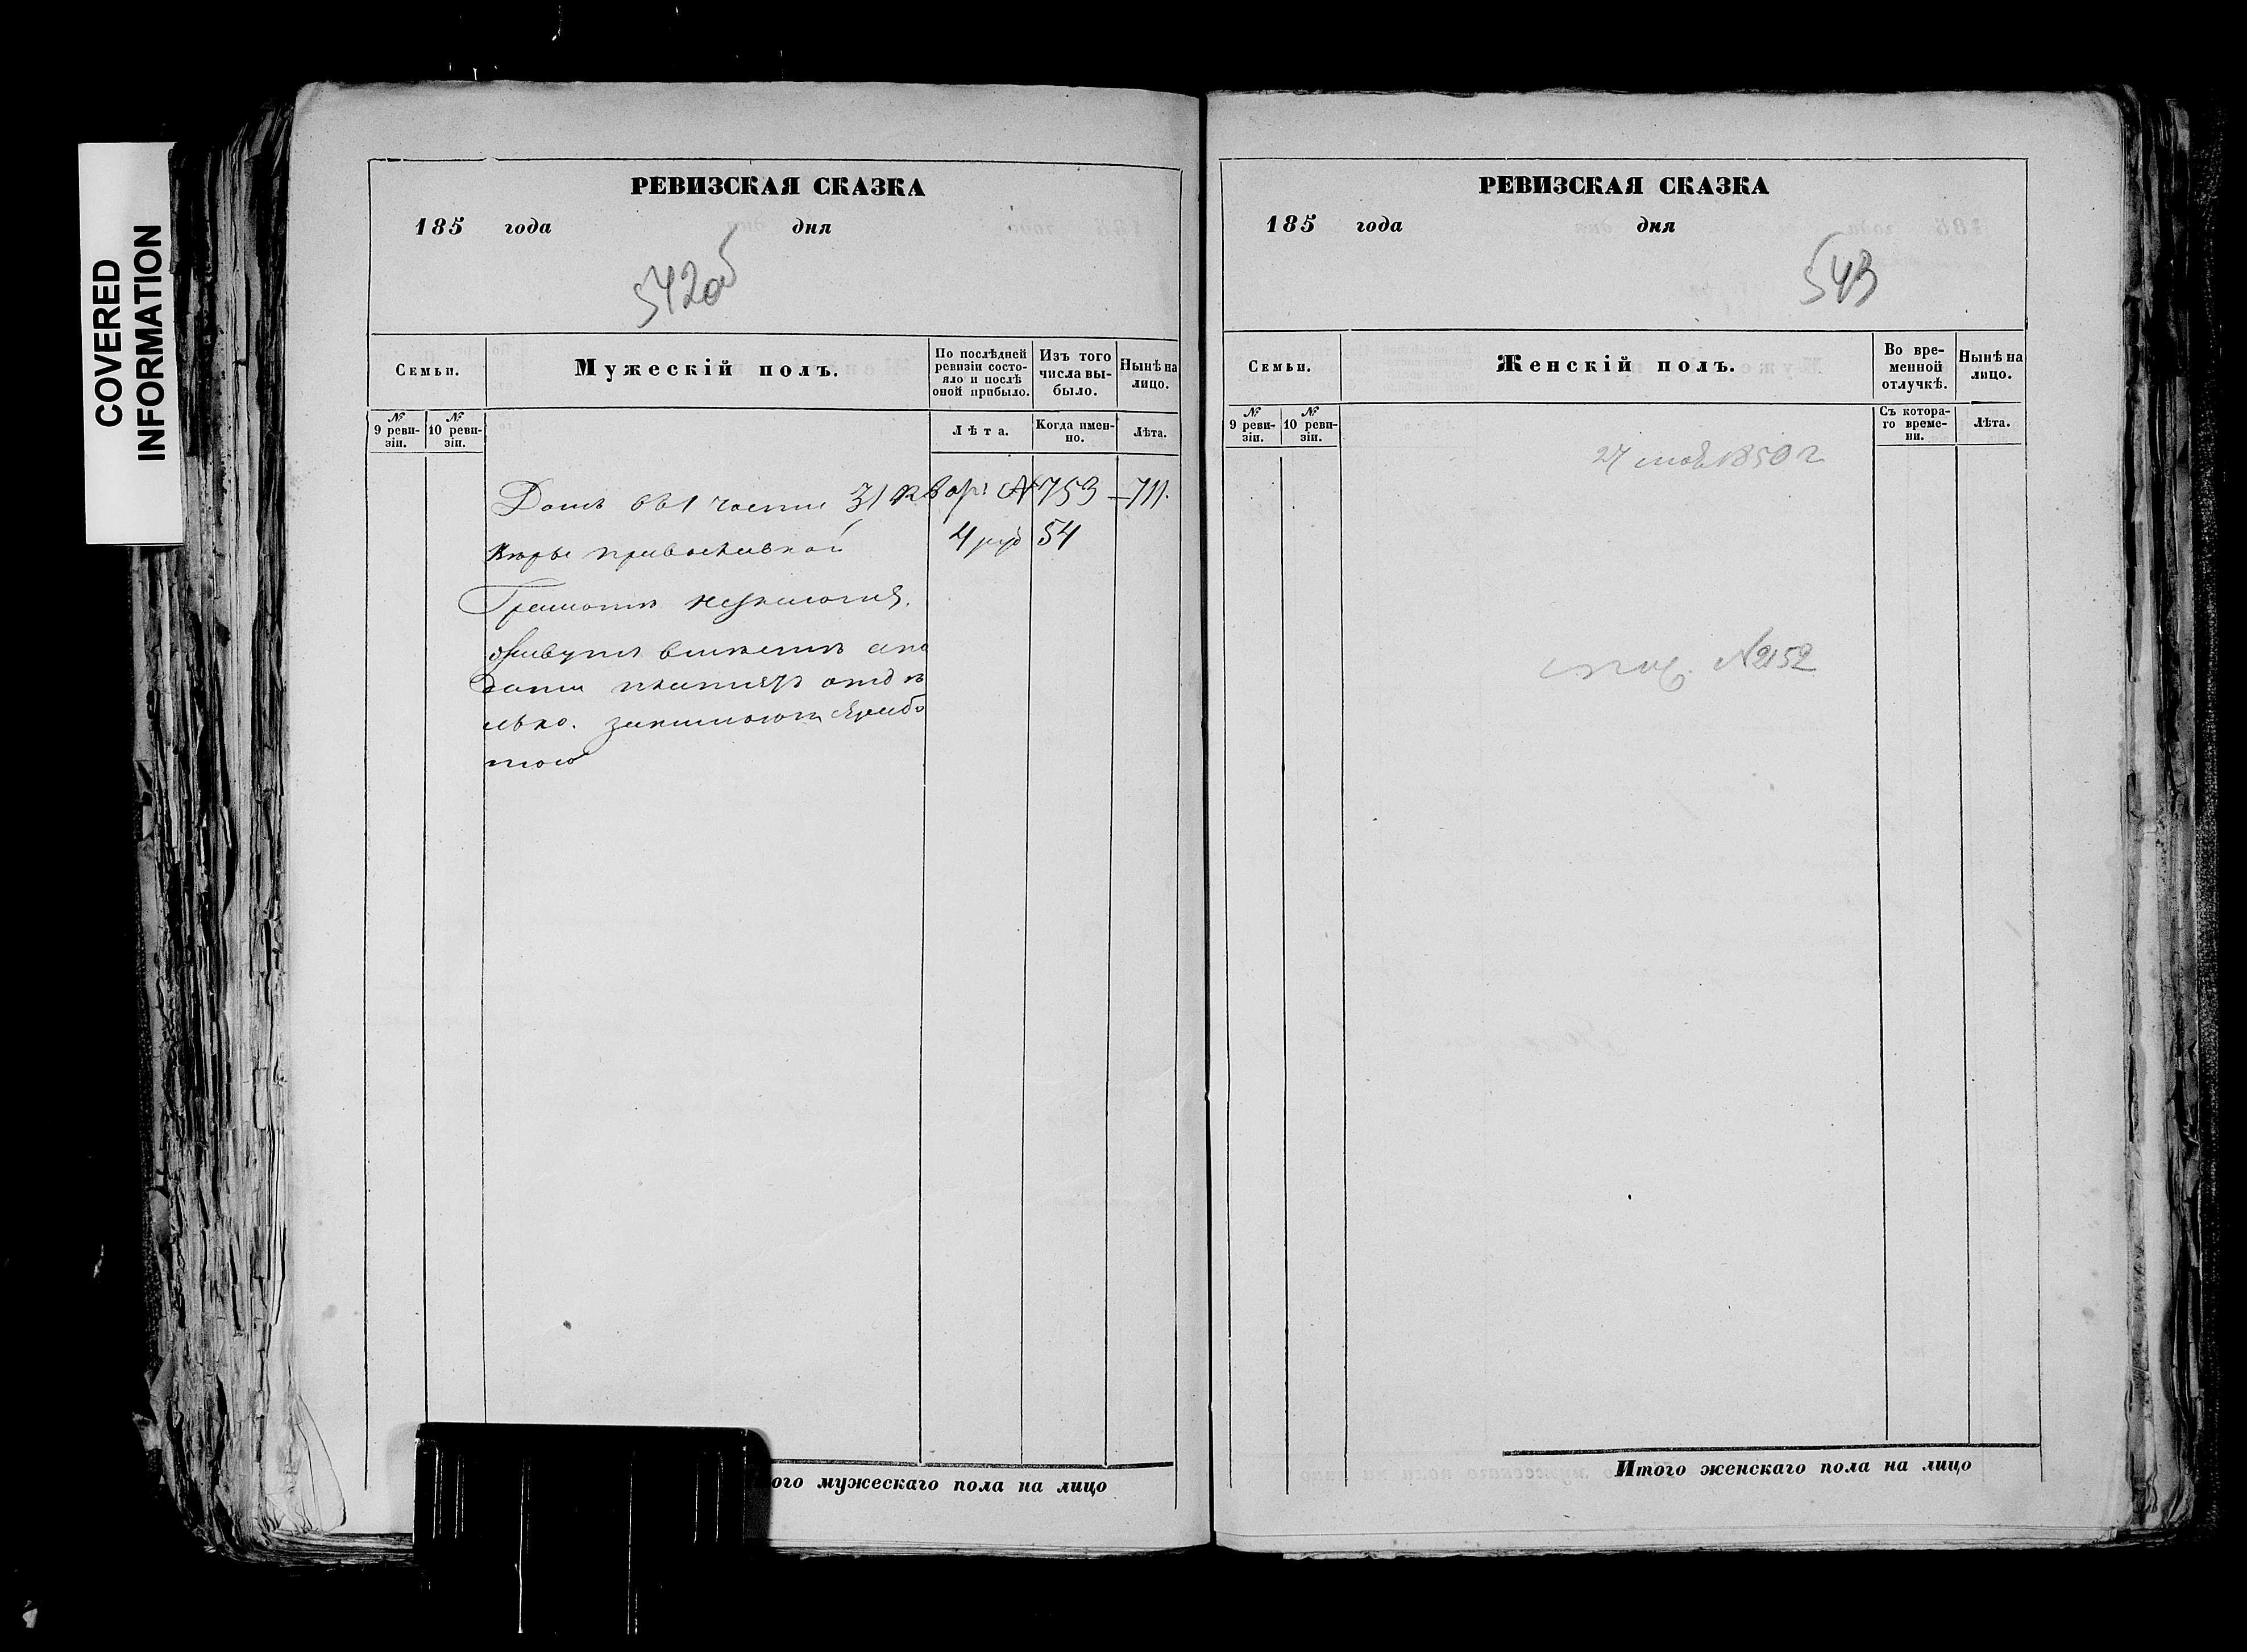 COVERED
INFORMATION
РЕВИЗСКАЯ СКАЗКА
185 года дня
542об
Семьи.
Мужескій полъ.
По послѣдней ревизіи состояло и послѣ оной прибыло.
Изъ того числа выбыло.
Нынѣ на лицо.
№ 9 ревизіи.
№ 10 ревизіи.
Лѣта.
Когда именно.
Лѣта.
Домъ въ 1 части 31 №753 – 711.
вѣры православной 4 руб 54
Грамотѣ
живутъ вмѣстѣ а по
дати платятъ отдѣ
льно. занимаются рабо
тою
ого мужескаго пола на лицо
РЕВИЗСКАЯ СКАЗКА
185 года дня
543
Семьи.
Женскій полъ.
Во временной отлучкѣ.
Нынѣ на лицо.
№ 9 ревизіи.
№ 10 ревизіи.
Съ котораго времени.
Лѣта.
27 1850 г
№2152
Итого женскаго пола на лицо